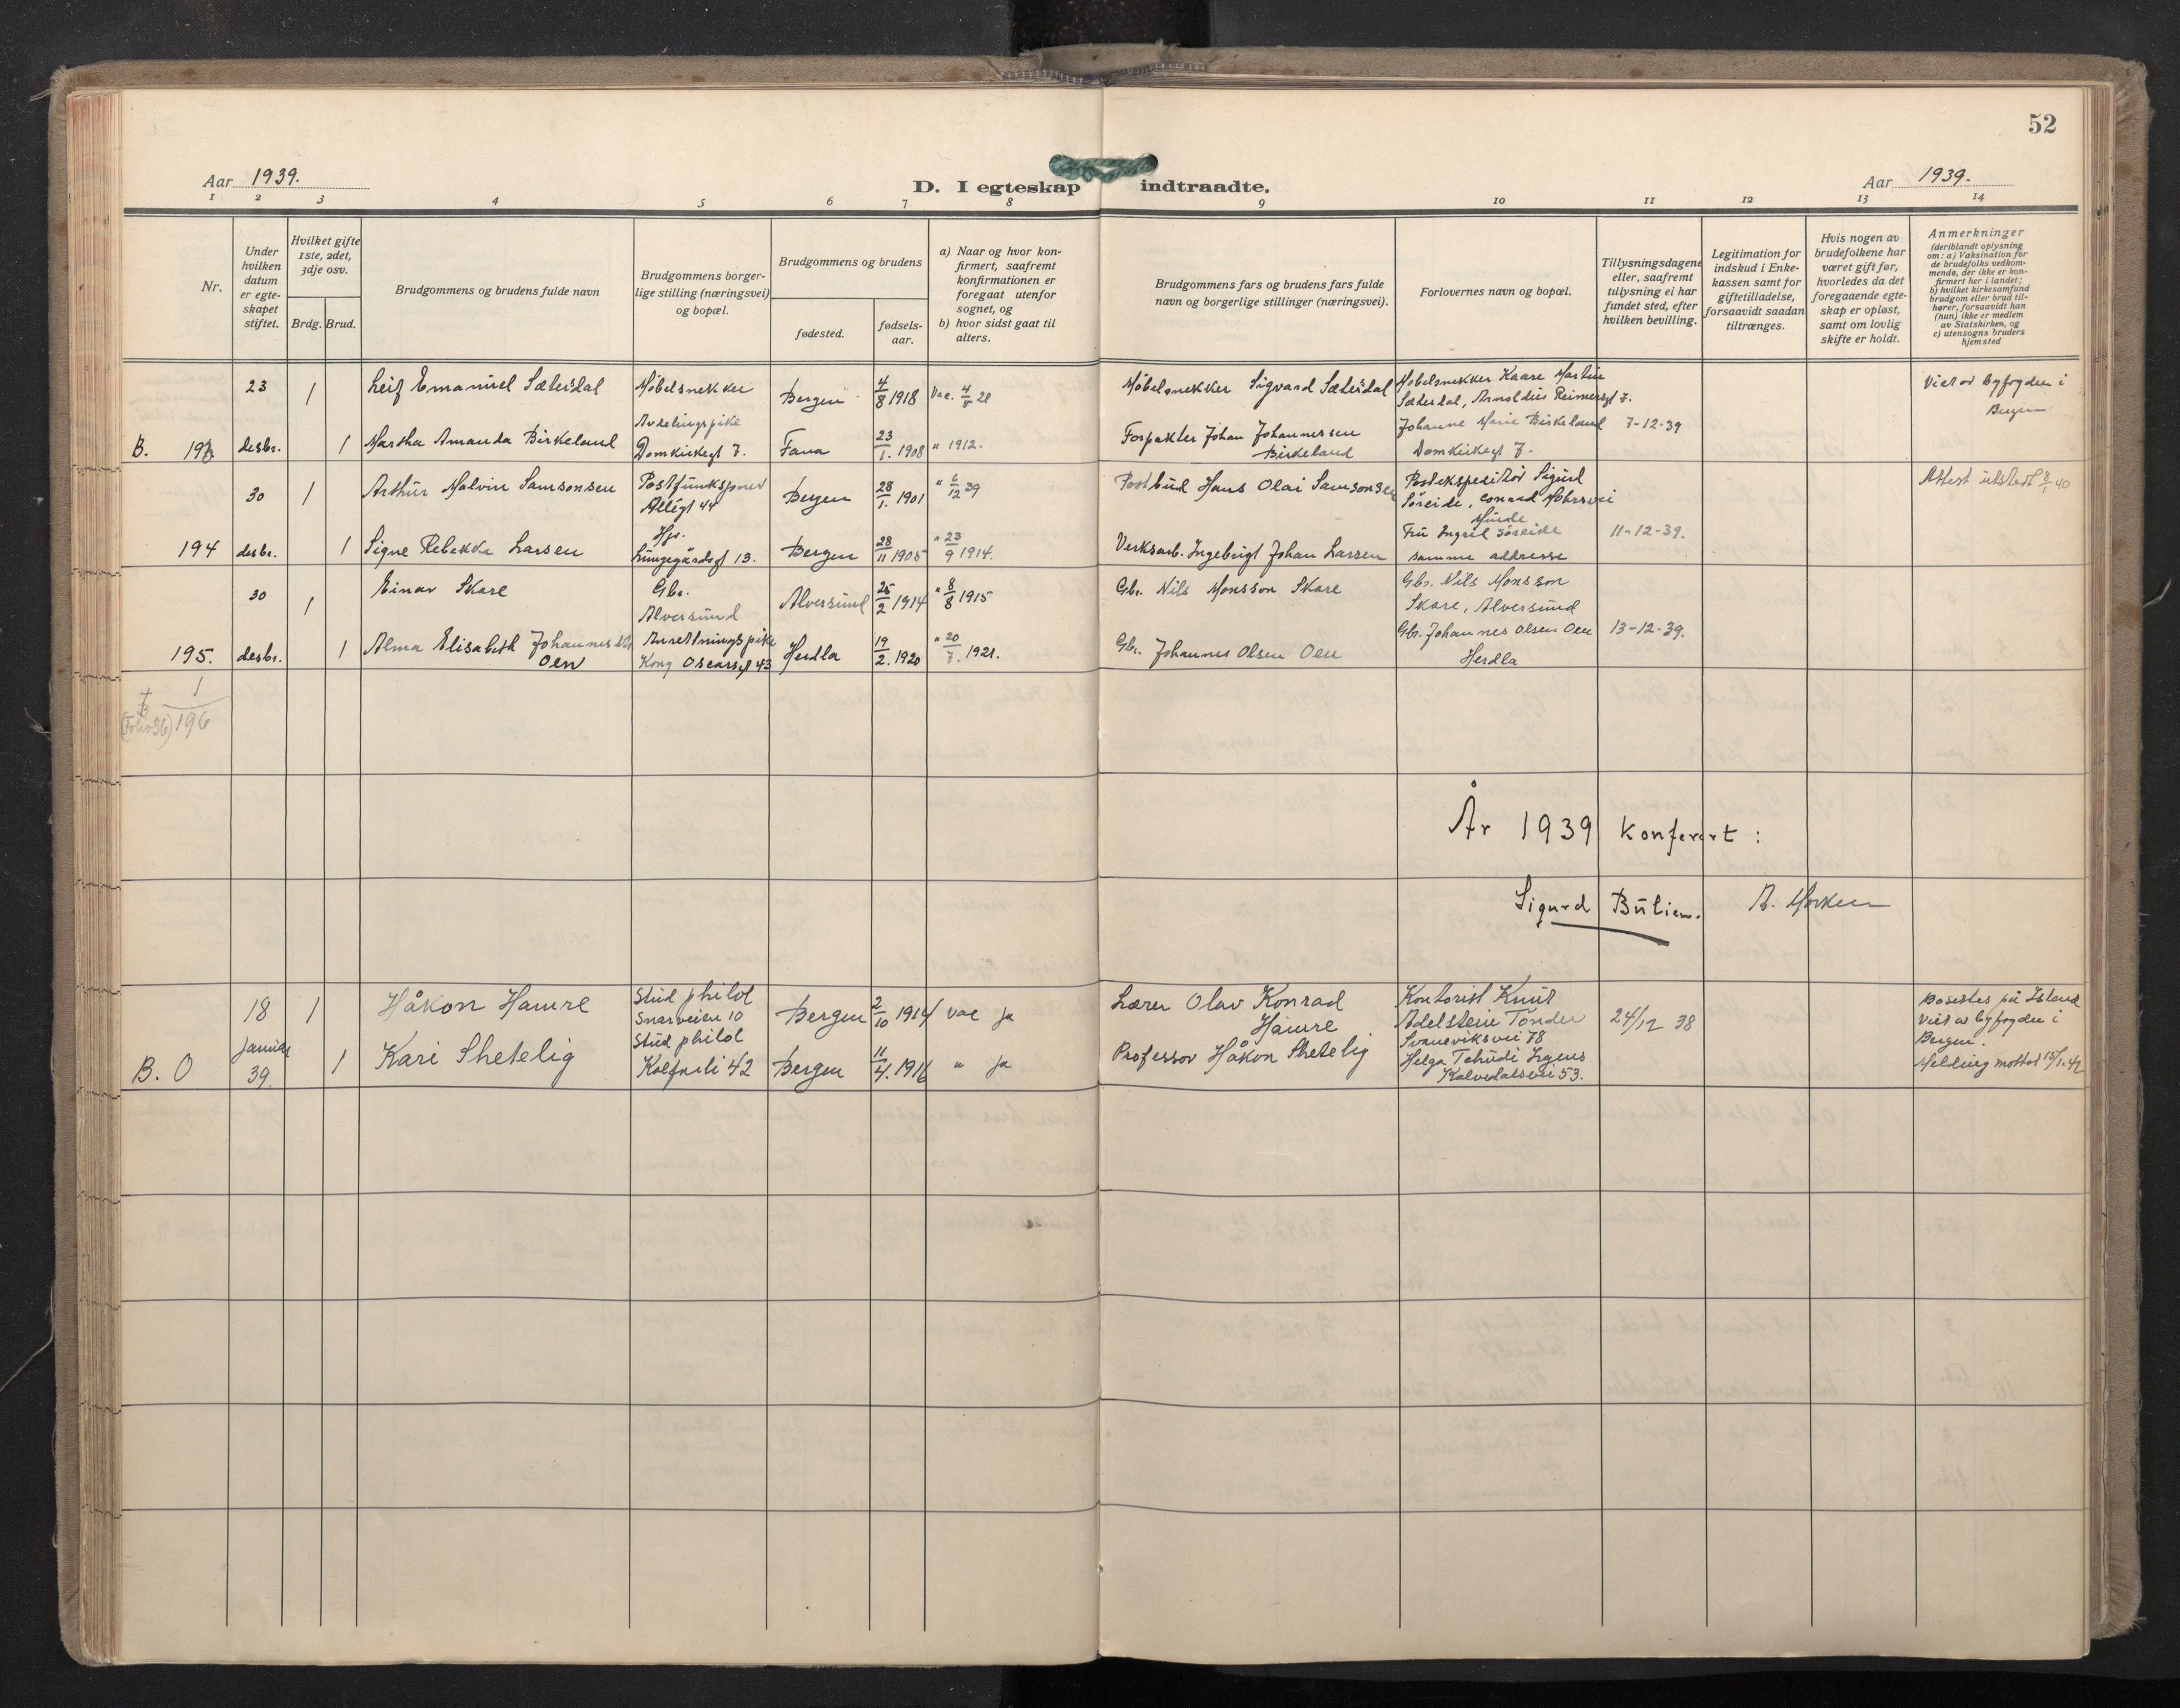 52
Aar 1939.
D. I egteskap indtraadte.
Aar 1939.
1 2 3 4 5 6 7 8 9 10 11 12 13 14
Nr.
Under hvilken datum er egteskapet stiftet.
Hvilket gifte 1ste, 2det, 3dje osv.
Brdg. Brud.
Brudgommens og brudens fulde navn
Brudgommens borgerlige stilling (næringsvei) og bopæl.
Brudgommens og brudens
fødested.
fødselsaar.
a) Naar og hvor konfirmert, saafremt konfirmationen er foregaat utenfor sognet, og
b) hvor sidst gaat til alters.
Brudgommens fars og brudens fars fulde navn og borgerlige stillinger (næringsvei).
Forlovernes navn og bopæl.
Tillysningsdagene eller, saafremt tillysning ei har fundet sted, efter hvilken bevilling.
Legitimation for indskud i Enkekassen samt for giftetilladelse, forsaavidt saadan tiltrænges.
Hvis nogen av brudefolkene har været gift før, hvorledes da det foregaaende egteskap er opløst, samt om lovlig skifte er holdt.
Anmerkninger
(deriblandt oplysning om: a) Vaksination for de brudefolks vedkommende, der ikke er konfirmert her i landet; b) hvilket kirkesamfund brudgom eller brud tilhører, forsaavidt han (hun) ikke er medlem av Statskirken, og c) utensogns bruders hjemsted
23 1 Leif Emanuel Sætersdal Møbelsnekker Bergen 4/8 1918 Vac. Møbelsnekker Sigvard Sætersdal Møbelsnekker Kaare Martin Viet av byfogden i
Sætersdal, Arnoldus Reimersgt 7. Bergen
Avdelingspike Johanne Marie Birkeland 7-12-39
B. desbr. 1 Martha Amanda Birkeland Domkirkegt 7. Fana 23/1. 1908 " 1912. Forpakter Johan Johannessen Domkirkegt 7.
Birkeland
30 1 Arthur Malvin Samsonsen Bergen 28/1. 1901 " 6/12 29 Postbud Hans Olai Samsonsen Postekspeditør Sigurd Attest utstedt 8/1 40
Allégt 44 Søreide, Conrad Mohrsvei
Minde
Hjv. Fru Ingril Søreide 11-12-39.
194 desbr. 1 Signe Rebekka Larsen Lungegårdsgt 13. Bergen 28/11 1905 " 23/9 1914. Verksarb. Ingebrigt Johan Larsen samme addresse
30 1 Einar Skare Gbr. Alversund 25/2 1914 " 8/8 1915 Gbr. Nils Monsson Skare Gbr. Nils Monsson
Alversund Skare, Alversund
Gbr. Johannes Olsen Oen 13-12-39.
195. desbr. 1 Alma Elisabeth Johannesdtr Anretningspike Herdla 19/2. 1920 " 20/7. 1921. Gbr. Johannes Olsen Oen Herdla
Oen Kong Oscarsgt 43
1
(Folio 36) 196
År 1939 konferert:
Sigurd
18 1 Håkon Hamre Stud philol Bergen 2/10 1914 vac ja Lærer Olav Konrad Kontorist Knut 24/12 38 Bosettes på Island
Snarveien 10 Hamre Adelstein Tønder Viet av byfogden i
Svaneviksvei 78 Bergen.
B. O januar 39. 1 Kari Shetelig Stud philol Bergen 11/4. 1916 " ja Professor Håkon Shetelig Helga Tchudi Irgens Melding mottat 15/1.42
Kalfarli 42 Kalvedalsvei 53.